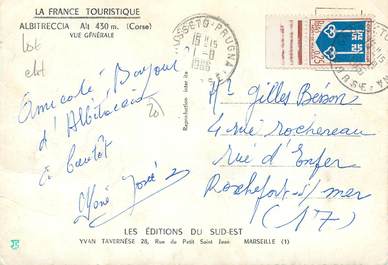 LA FRANCE TOURISTIQUE
ALBITRECCIA Alt 430 m. (Corse)
VUE GÉNÉRALE
lot
clot
Amical Bonjour
d'Albitreccia
à bientôt
José
20
COSSETO-PRUGNA
18 H 15
1966
Reproduction inter
0,25
Mr Gilles Besson
4 rue rochereau
rue d'Enfer
Rochefort s/ mer
(17)
LES ÉDITIONS DU SUD-EST
YVAN TAVERNÈSE 28, Rue du Petit Saint Jean MARSEILLE (1)